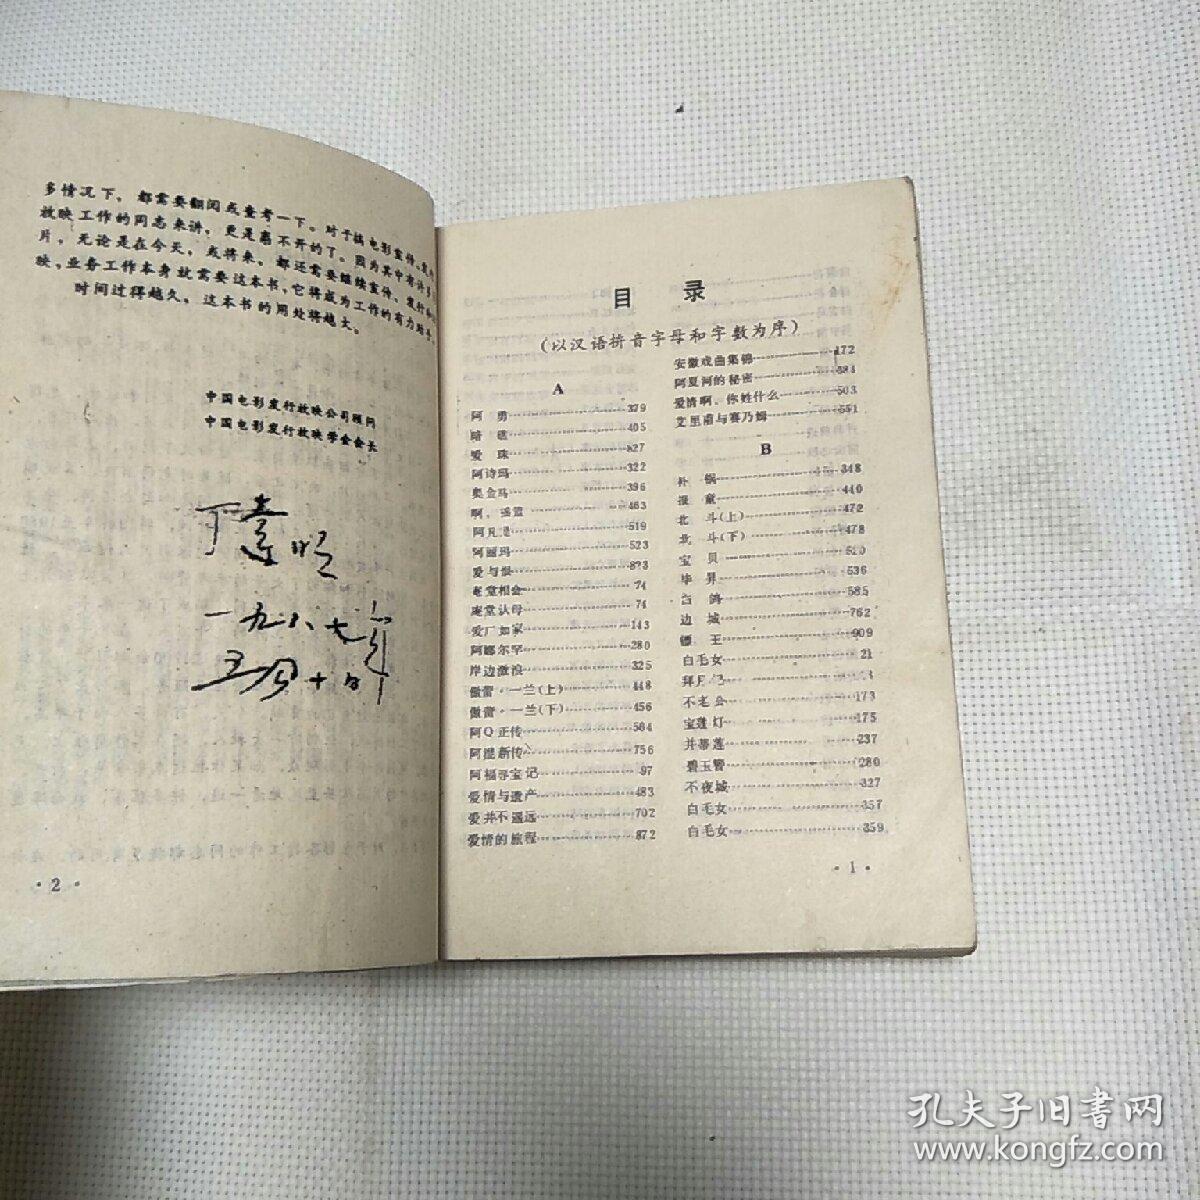 多情况下，都需要翻阅或查考一下。对于搞电影宣传、发行
放映工作的同志来讲，更是离不开的了。因为其中有许多
片，无论是在今天，或将来，都还需要继续宣传、发行和
映，业务工作本身就需要这本书，它将成为工作的有力助手。
时间过得越久，这本书的用处将越大。
中国电影发行放映公司顾问
中国电影发行放映学会会长
一九八七年
·2·
目 录
（以汉语拼音字母和字数为序）
A
阿 勇 379
暗 礁 405
爱 珠 827
阿诗玛 322
奥金马 396
啊，摇篮 463
阿凡提 519
阿丽玛 523
爱与恨 873
庵堂相会 74
庵堂认母 74
爱厂如家 143
阿娜尔罕 280
岸边激浪 325
傲蕾·一兰（上） 448
傲蕾·一兰（下） 456
阿Q正传 584
阿混新传 756
阿福寻宝记 97
爱情与遗产 483
爱并不遥远 702
爱情的旅程 872
安徽戏曲集锦 172
阿夏河的秘密 384
爱情啊，你姓什么 503
艾里甫与赛乃姆 551
B
补 锅 348
报 童 440
北 斗（上） 472
北 斗（下） 478
宝 贝 510
毕 昇 536
白 鸽 585
边 城 762
镖 王 909
白毛女 21
拜月记
不老会 173
宝莲灯 175
并蒂莲 237
碧玉簪 280
不夜城 327
白毛女 357
白毛女 359
·1·
孔夫子旧书网
www.kongfz.com